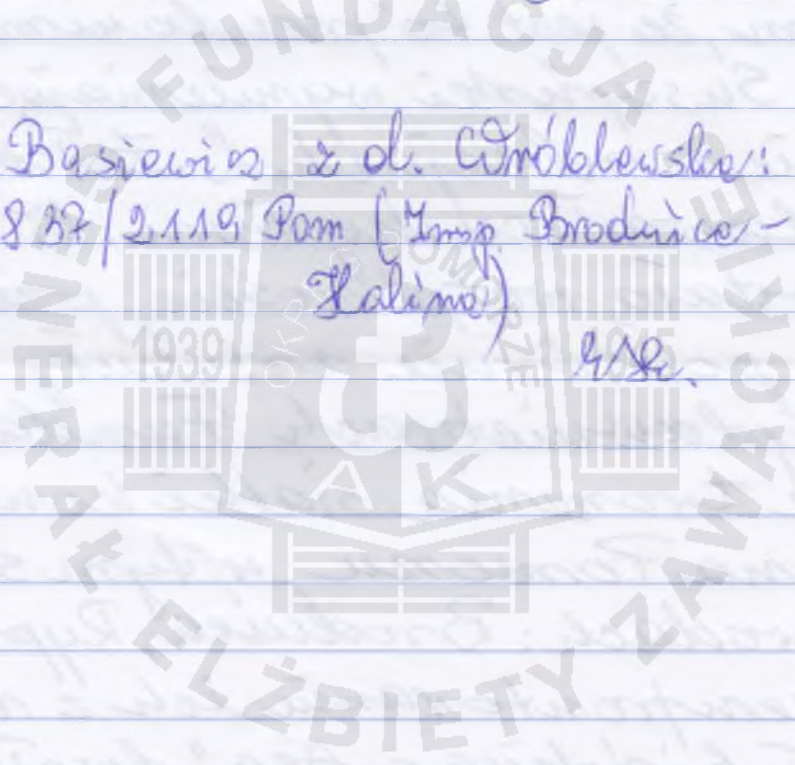 Basiewicz z d. Wróblewska:
837/2119 Pom (Insp. Brodnica -
Halina)
FUNDACJA GENERAŁ ELŻBIETY ZAWACKIEJ
1939 1945
OKRĘG POMORZE
AK